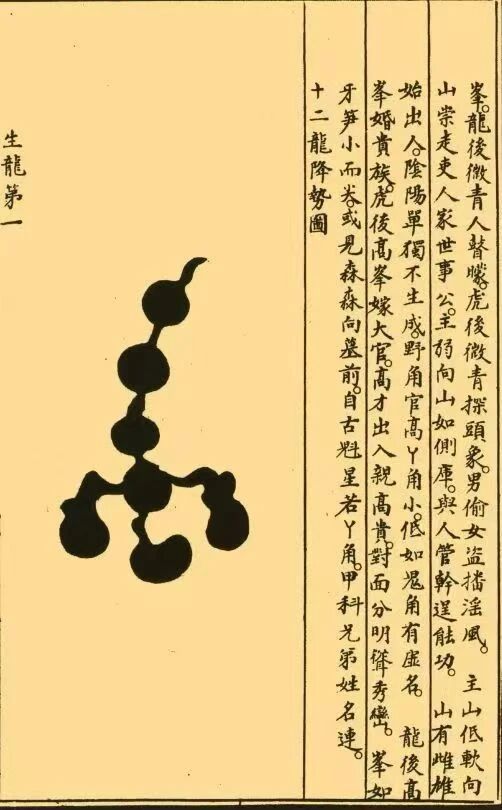 峯。龍後微青人瞽矇。虎後微青探頭象。男偷女盜播滛風。 主山低軟向
山崇走吏人家世事公。主弱向山如側庫。與人管幹逞能功。 山有雌雄
始出人。陰陽單獨不生成。野角官高丫角小。低如鬼角有虛名。 龍後高
峯婚貴族。虎後高峯嫁大官。高才出入親高貴。對面分明聳秀巒。 峯如
牙笋小而尖。或見森森向墓前。自古魁星若丫角。甲科兄弟姓名連。
十二龍降勢圖
生龍第一